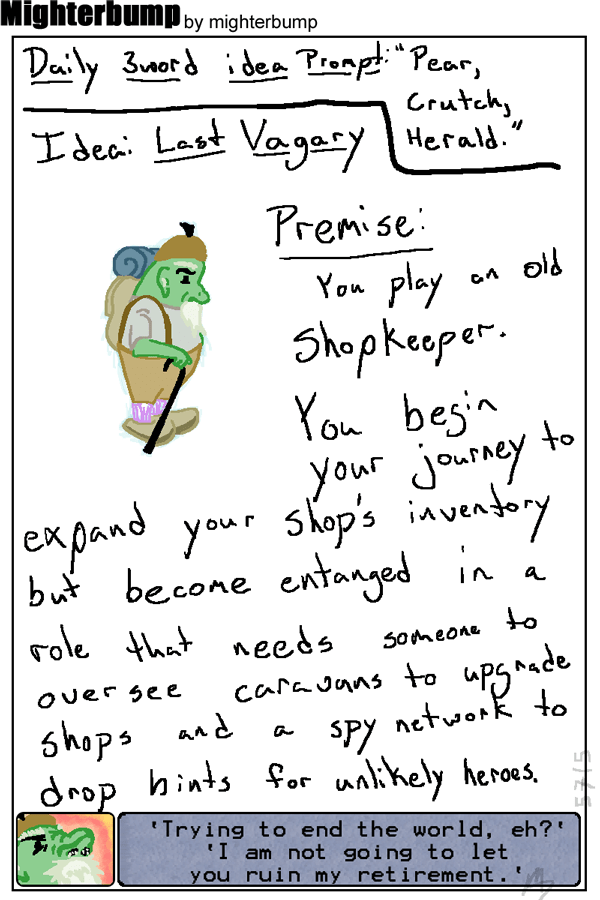 Mighterbump by mighterbump
Daily 3word idea Prompt: "Pear,
Crutch,
Herald."
Idea: Last Vagary
Premise:
You play an old
Shopkeeper.
You begin
your journey to
expand your shop's inventory
but become entanged in a
role that needs someone to
oversee caravans to upgrade
shops and a spy network to
drop hints for unlikely heroes.
'Trying to end the world, eh?'
'I am not going to let
you ruin my retirement.'